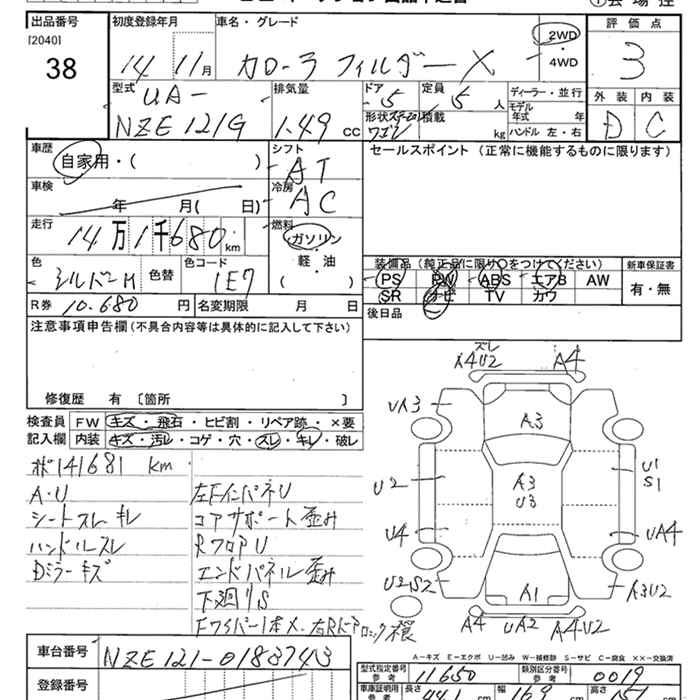 出品番号 初度登録年月 車名・グレード ①会場控
[2040] 評価点
38 14 11月 カローラ フィルダー X 2WD・4WD 3
型式 排気量 ドア 定員 ディーラー・並行 外装 内装
UA- 5 5人 モデル年式 年 D C
NZE121G 1.49 cc 形状 ステーションワゴン 積載 kg ハンドル 左・右
車歴 シフト セールスポイント (正常に機能するものに限ります)
自家用・( ) AT
車検 冷房
年 月( 日) AC
走行 燃料
14万1千680km ガソリン
軽・油 装備品 (純正品に限り○をつけてください) 新車保証書
色 色替 色コード ( ) PS PW ABS エアB AW 有・無
シルバーM 1E7 SR ナビ TV カワ
R券 10.680円 名変期限 月 日 後日品
注意事項申告欄 (不具合内容等は具体的に記入して下さい)
修復歴 有 [箇所 ]
検査員 FW キズ・飛石・ヒビ割・リペア跡・×要
記入欄 内装 キズ・汚レ・コゲ・穴・スレ・キレ・破レ
ズレ
A4U2 A4
UA3 A3
U2 A3 U3 U1 S1
U4 UA4
U2S2 A1 A3U2
A4 UA2 A4U2
141681 km
A・U 左Fインパネ U
シートスレ キレ コアサポート歪み
ハンドルスレ RフロアU
Dミラーキズ エンドパネル歪み
下廻りS
A-キズ E-エクボ U-凹み W-補修跡 S-サビ C-腐食 XX-交換済
車台番号 NZE121-0183743
型式指定番号 参考 11650 類別区分番号 参考 0019
登録番号
車庫証明用 参考 長さ 441 cm 幅 169 cm 高さ 151 cm